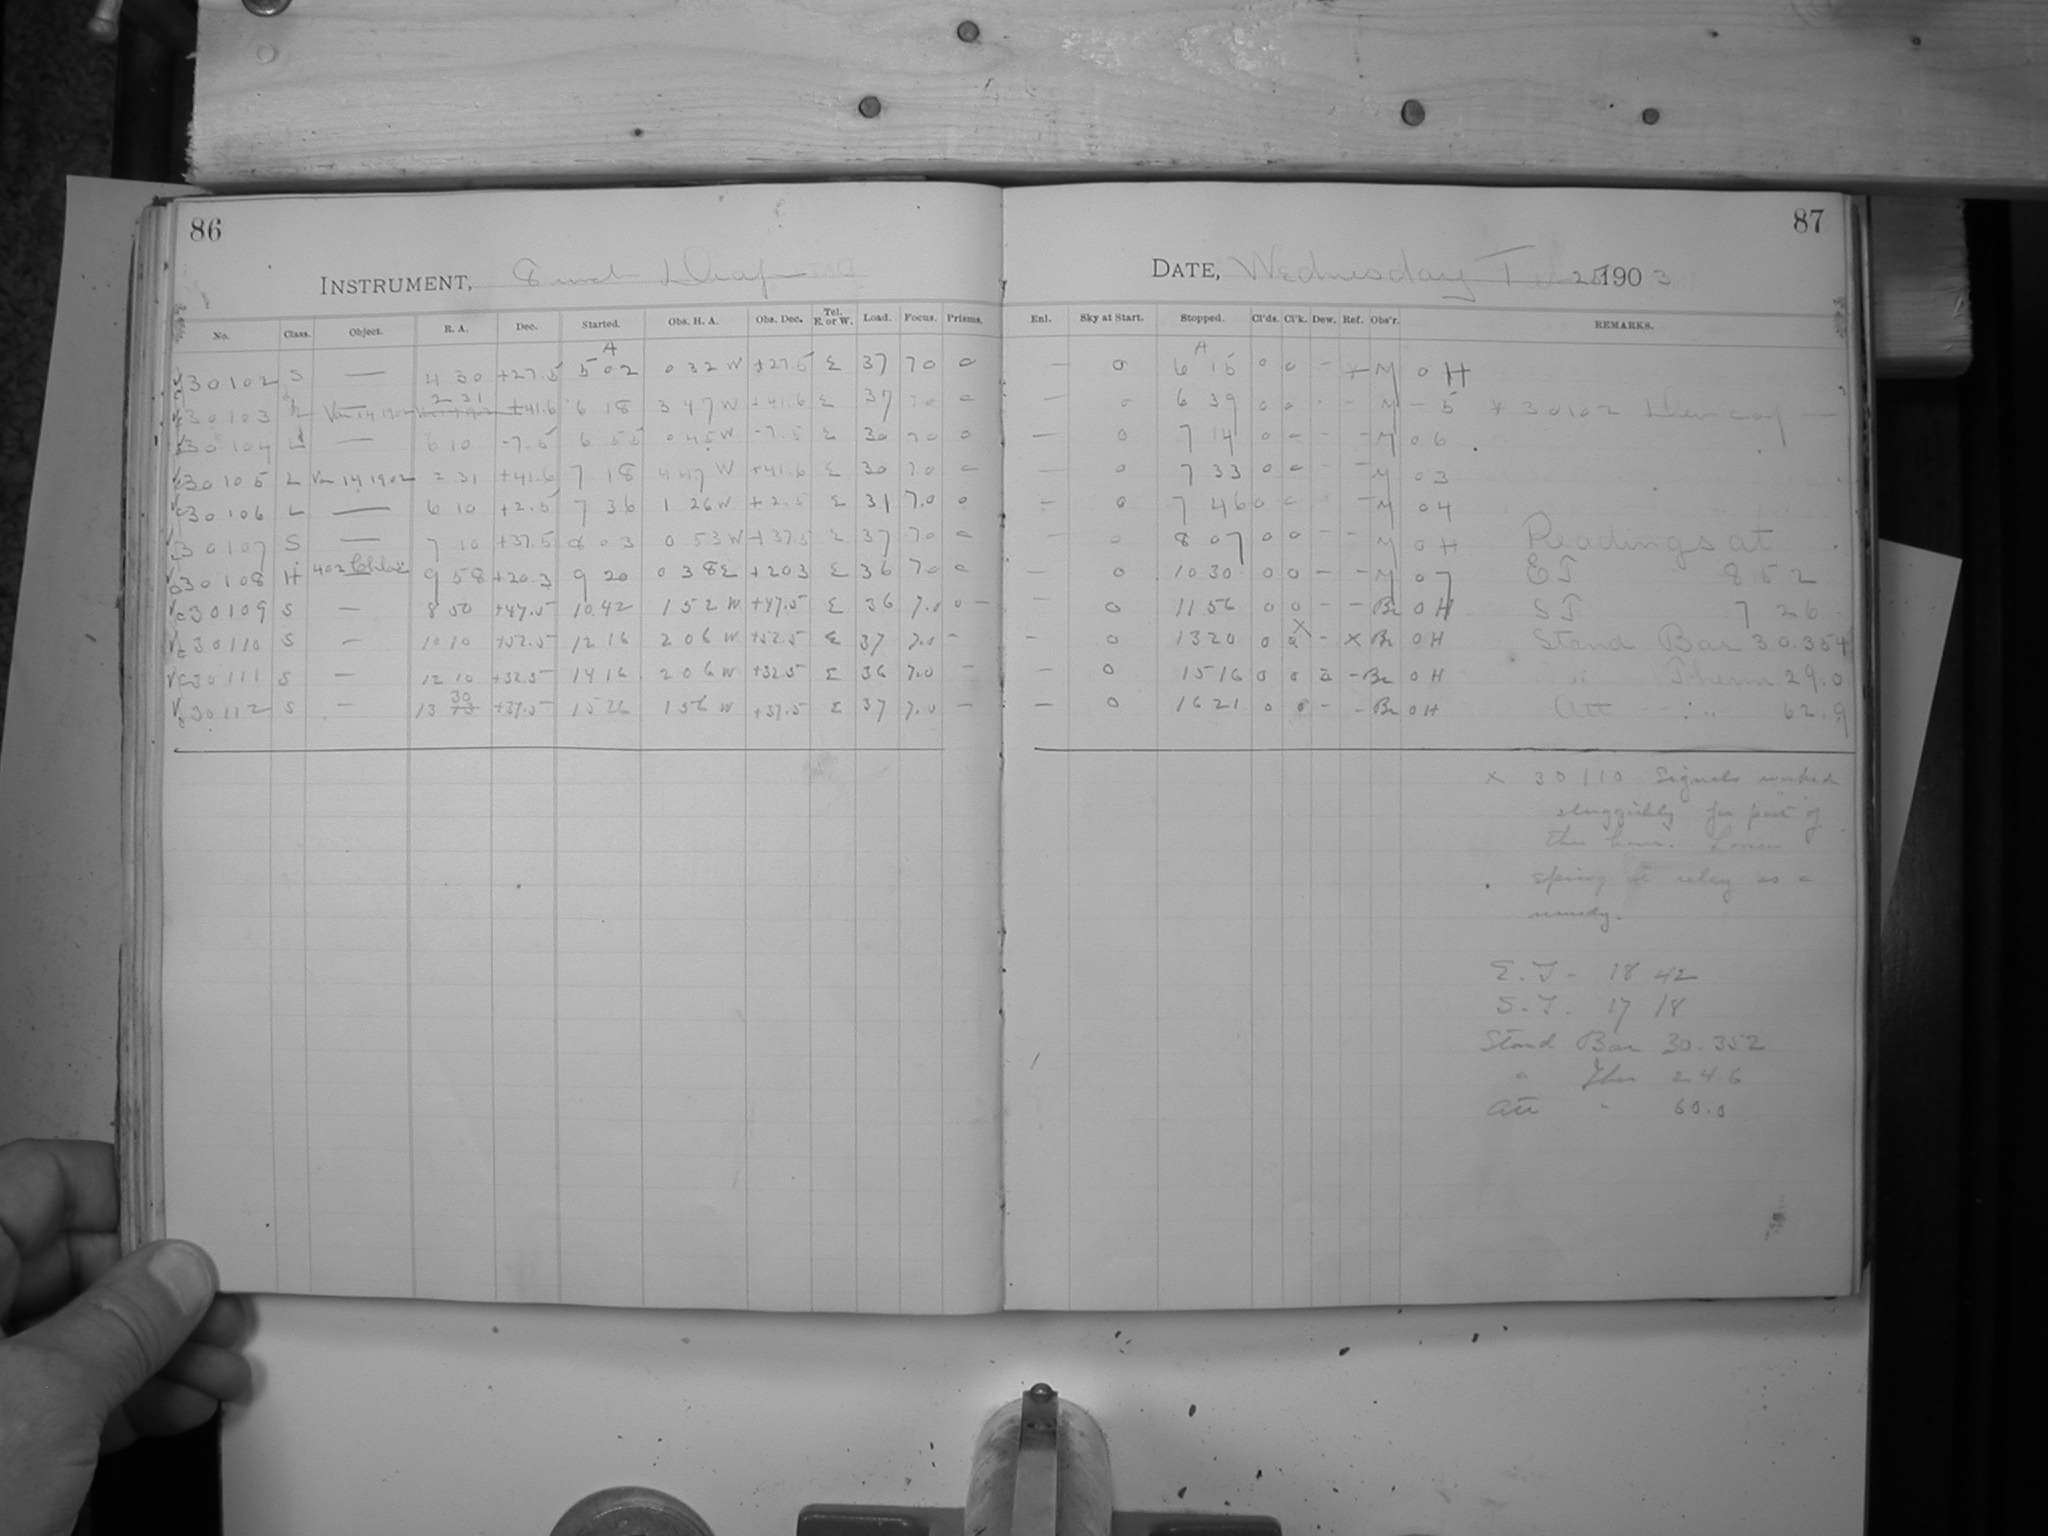 86
87
INSTRUMENT, 8 inch Draper
DATE, Wednesday 25 1903
No. Class. Object. R. A. Dec. Started. Obs. H. A. Obs. Dec. Tel. E. or W. Load. Focus. Prisms. Enl. Sky at Start. Stopped. Cl'ds. Cl'k. Dew. Ref. Obs'r. REMARKS.
A A
30102 S — 4 30 +27.5 5 02 0 32 W +27.5 E 37 70 0 — 0 6 15 0 0 - x M 0 H
2 31
30103 L Var 14 1902 +41.6 6 18 3 47 W +41.6 E 37 70 0 - 0 6 39 0 0 - - M - 5 x 30102 Dew cap
30104 L — 6 10 -7.5 6 55 0 45 W -7.5 E 30 70 0 — 0 7 14 0 0 - - M 0 6
30105 L Var 14 1902 2 31 +41.6 7 18 4 47 W +41.6 E 30 7.0 0 — 0 7 33 0 0 - - M 0 3
30106 L — 6 10 +2.5 7 36 1 26 W +2.5 E 31 7.0 0 — 0 7 46 0 0 - - M 0 4
30107 S — 7 10 +37.5 8 03 0 53 W +37.5 E 37 70 0 — 0 8 07 0 0 - - M 0 H Readings at
30108 H 402 Chloë 9 58 +20.3 9 20 0 38 E +20.3 E 36 70 0 — 0 10 30 0 0 - - M 0 7 ET 8 52
30109 S — 8 50 +47.5 10 42 1 52 W +47.5 E 36 7.0 0 — — 0 11 56 0 0 - - Br 0 H ST 7 26
30110 S — 10 10 +52.5 12 16 2 06 W +52.5 E 37 7.0 — — 0 13 20 0 0 x - x Br 0 H Stand Bar 30.354
30111 S — 12 10 +32.5 14 16 2 06 W +32.5 E 36 7.0 — — 0 15 16 0 0 0 - Br 0 H " Therm 29.0
30
30112 S — 13 13 +37.5 15 26 1 56 W +37.5 E 37 7.0 — — 0 16 21 0 0 - - Br 0 H Att " 62.9
x 30110 Signals worked
sluggishly for part of
the hour.
spring at relay as a
remedy.
E.T - 18 42
S.T. 17 18
Stand Bar 30.352
" Ther 24.6
Att " 60.0